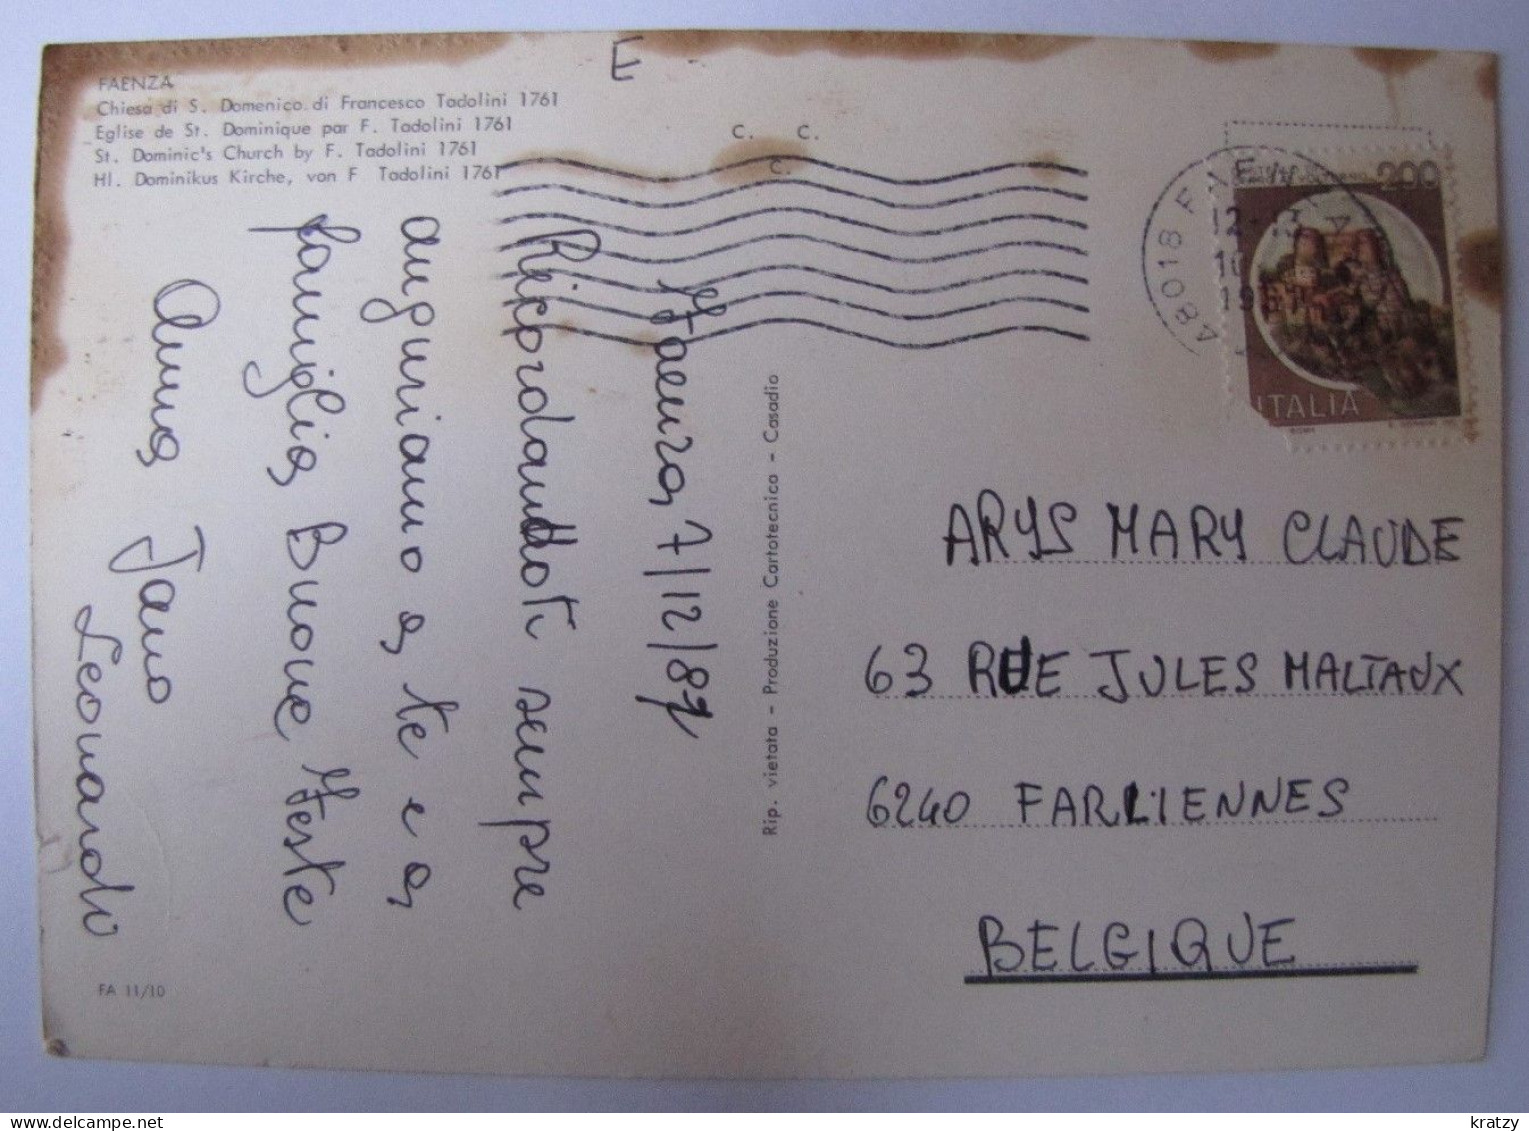 FAENZA
Chiesa di S. Domenico di Francesco Tadolini 1761
Eglise de St. Dominique par F. Tadolini 1761
St. Dominic's Church by F. Tadolini 1761
Hl. Dominikus Kirche, von F Tadolini 1761
E
C. C.
C.
Faenza, 7/12/87
Ricordandoti sempre
auguriamo a te e a
famiglia Buone Feste
Anna Jano
Leonardo
FA 11/10
Rip. vietata - Produzione Cartotecnica - Casadio
48018 FAENZA
12-13
10
1987
200
ITALIA
ROMA
ARYS MARY CLAUDE
63 RUE JULES MALTAUX
6240 FARCIENNES
BELGIQUE
kratzy